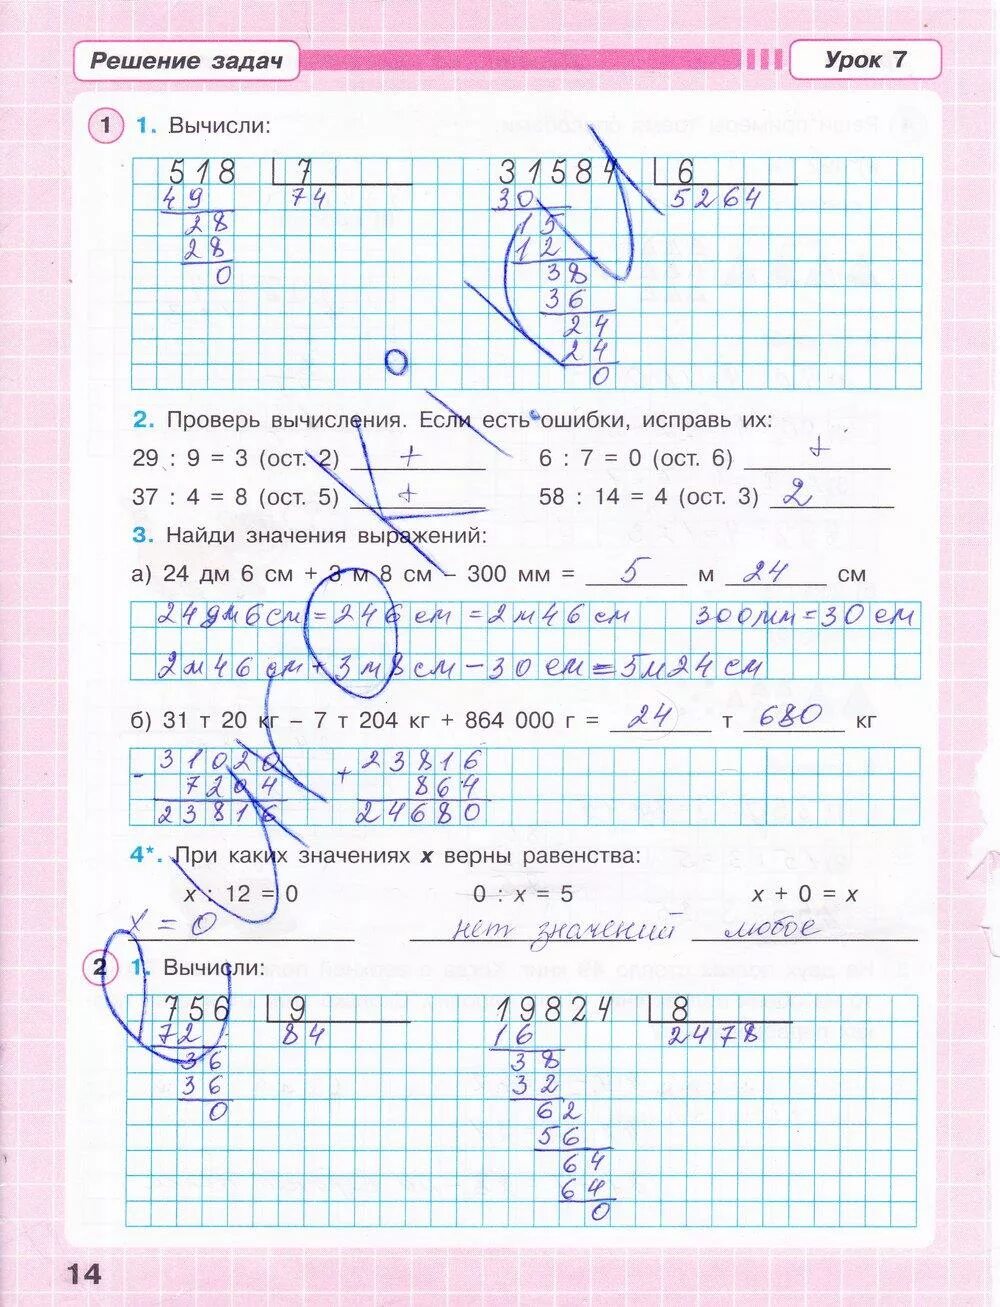 Решение задач
Урок 7
1 1. Вычисли:
518 7 31584 6
49 74 30 5264
28 15
28 12
0 38
36
24
24
0
2. Проверь вычисления. Если есть ошибки, исправь их:
29 : 9 = 3 (ост. 2) + 6 : 7 = 0 (ост. 6) +
37 : 4 = 8 (ост. 5) + 58 : 14 = 4 (ост. 3) 2
3. Найди значения выражений:
а) 24 дм 6 см + 3 м 8 см – 300 мм = 5 м 24 см
24 дм 6 см = 246 см = 2 м 46 см 300 мм = 30 см
2 м 46 см + 3 м 8 см – 30 см = 5 м 24 см
б) 31 т 20 кг – 7 т 204 кг + 864 000 г = 24 т 680 кг
- 31020 + 23816
7204 864
23816 24680
4*. При каких значениях x верны равенства:
x : 12 = 0 0 : x = 5 x + 0 = x
x = 0 нет значений любое
2 1. Вычисли:
756 9 19824 8
72 84 16 2478
36 38
36 32
0 62
56
64
64
0
14